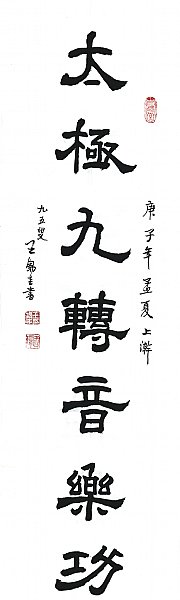 太極九轉音樂功
庚子年孟夏上浣
九五叟